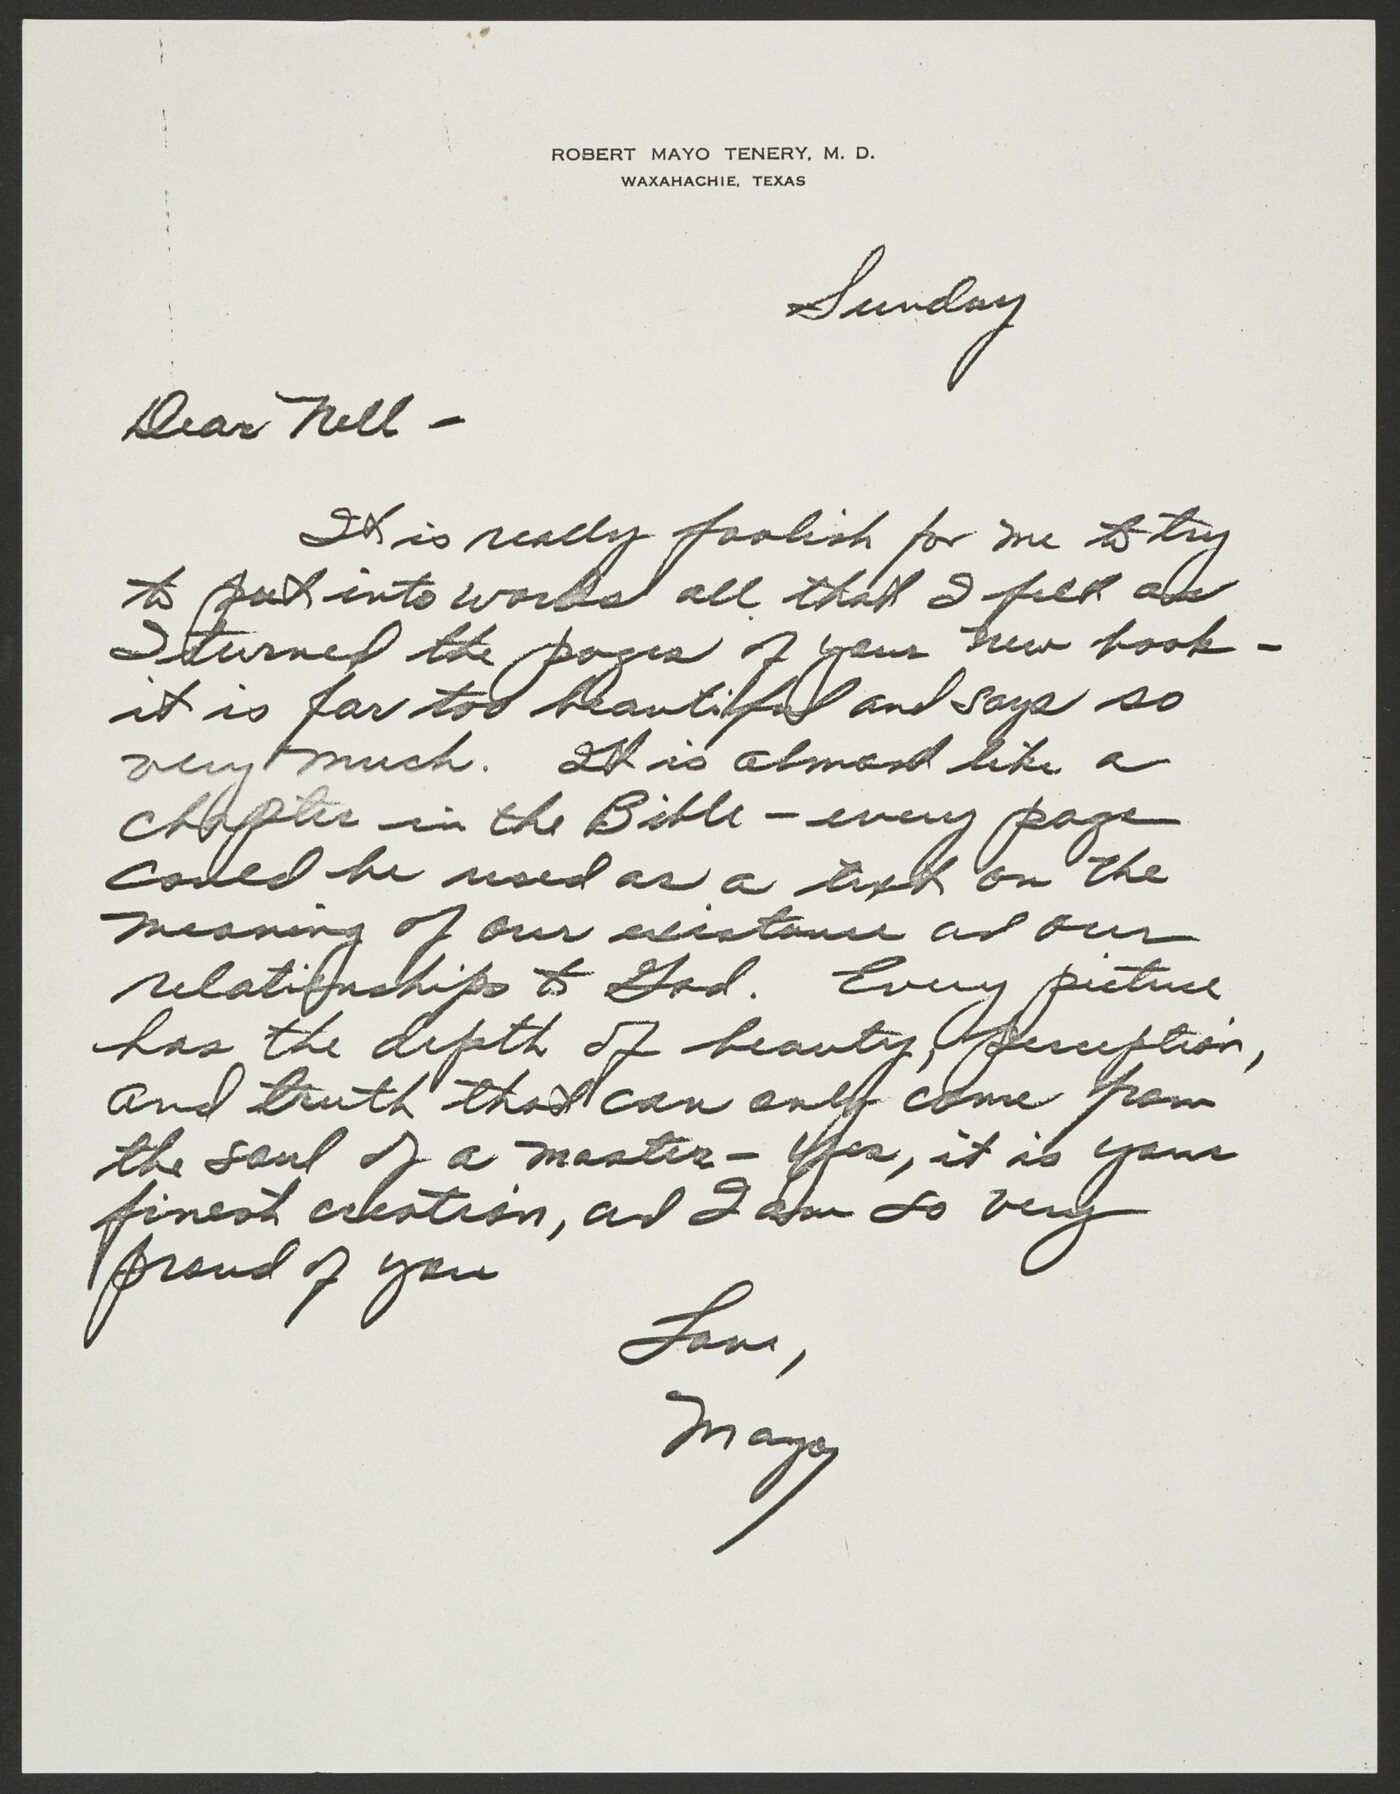 ROBERT MAYO TENERY, M. D.
WAXAHACHIE, TEXAS
Sunday
Dear Nell -
It is really foolish for me to try
to put into words all that I felt as
I turned the pages of your new book -
it is far too beautiful and says so
very much. It is almost like a
chapter in the Bible - every page
could be used as a text on the
meaning of our existance ad our
relationships to God. Every picture
has the depth of beauty, perception,
and truth that can only come from
the soul of a master - Yes, it is your
finest creation, ad I am so very
proud of you
Love,
Mayo